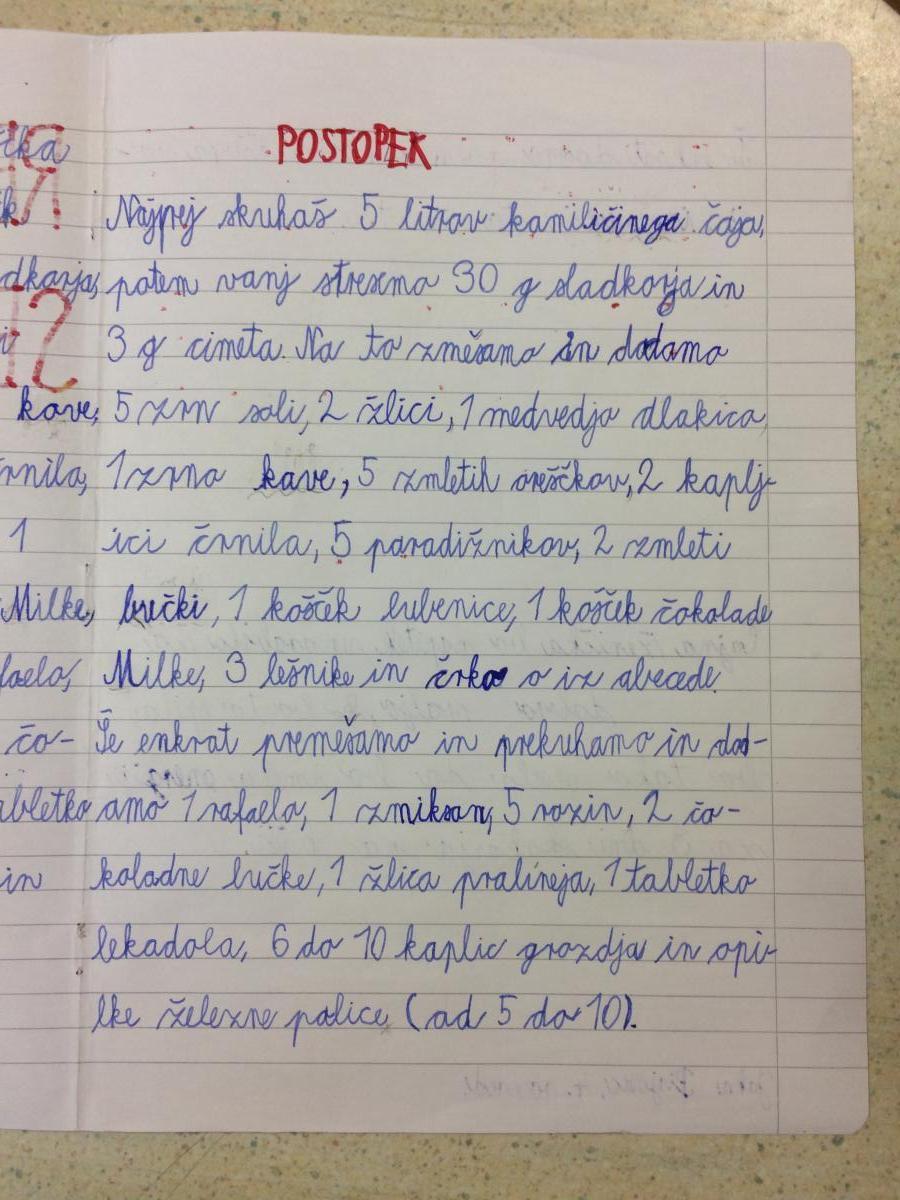 POSTOPEK
čka
k Najprej skuhaš 5 litrov kamiličinega čaja,
dkorja, potem vanj stresmo 30 g sladkorja in
3 g cimeta. Na to zmešamo in dodamo
kave, 5 zrn soli, 2 žlici, 1 medvedja dlakica,
rnila, 1 zrno kave, 5 zmletih oreščkov, 2 kaplj-
1 ici črnila, 5 paradižnikov, 2 zmleti
Milke, bučki, 1 košček lubenice, 1 košček čokolade
faela, Milke, 3 lešnike in črko o iz abecede.
čo- Še enkrat premešamo in prekuhamo in dod-
abletko amo 1 rafaela, 1 zmiksan, 5 rozin, 2 čo-
in koladne bučke, 1 žlica pralineja, 1 tabletko
lekadola, 6 do 10 kaplic grozdja in opi-
lke železne palice (od 5 do 10).